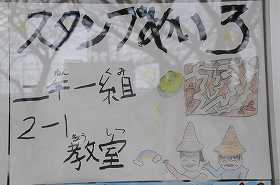 スタンプめいろ
ねん くみ
二年一組
2-1
きょう しつ
教室